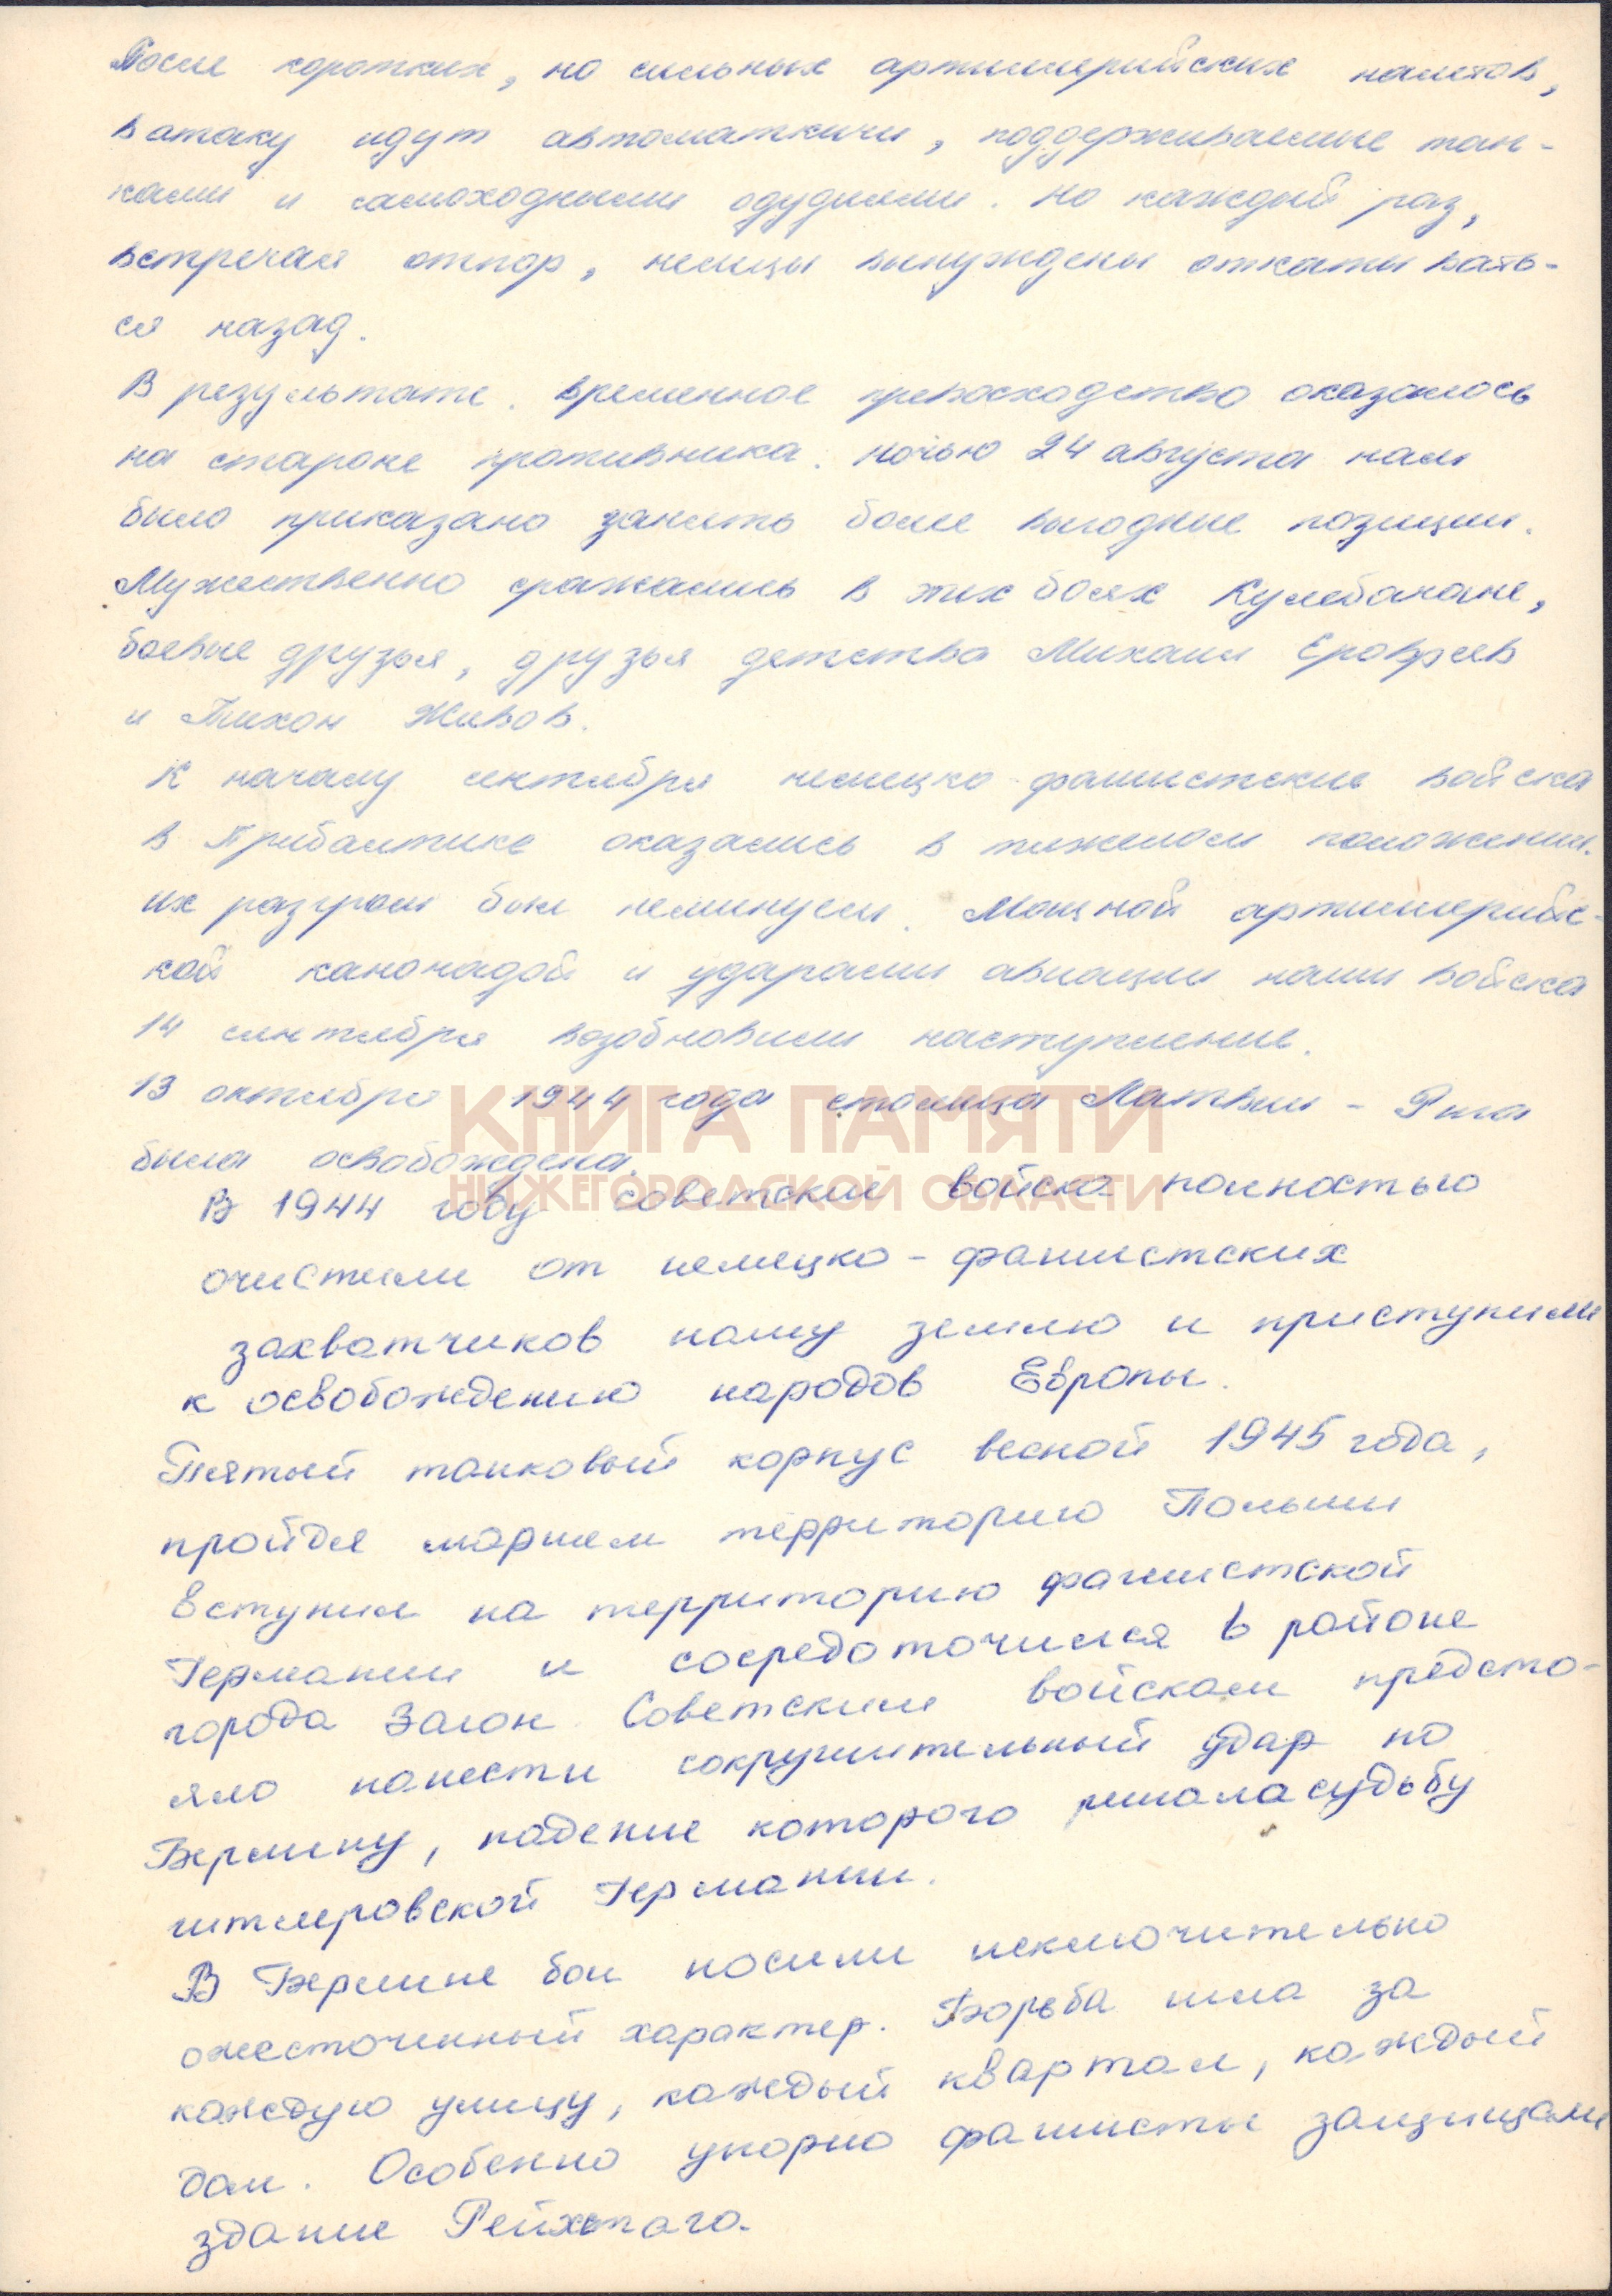 После коротких, но сильных артиллерийских налетов,
в атаку идут автоматчики, поддерживаемые тан-
ками и самоходными орудиями. Но каждый раз,
встречая отпор, немцы вынуждены откатывать-
ся назад.
В результате временное превосходство оказалось
на староне противника. Ночью 24 августа нам
было приказано занять более выгодные позиции.
Мужественно сражались в этих боях Кулебачане,
боевые друзья, друзья детства Михаил Ерофеев
и Тихон Живов.
К началу сентября немецко-фашистские войска
в Прибалтике оказались в тяжелом положении.
их разгром был неминуем. Мощной артиллерийс-
кой канонадой и ударами авиации наши войска
14 сентября возобновили наступление.
13 октября 1944 года столица Латвии - Рига
была освобождена.
КНИГА ПАМЯТИ
НИЖЕГОРОДСКОЙ ОБЛАСТИ
В 1944 году советские войска полностью
очистили от немецко-фашистских
захватчиков нашу землю и приступили
к освобождению народов Европы.
Пятый танковый корпус весной 1945 года,
пройдя маршем территорию Польши
вступил на территорию фашистской
Германии и сосредоточился в районе
города Загон. Советским войскам предсто-
яло нанести сокрушительный удар по
Берлину, падение которого решала судьбу
гитлеровской Германии.
В Берлине бои носили исключительно
ожесточенный характер. Борьба шла за
каждую улицу, каждый квартал, каждый
дом. Особенно упорно фашисты защищали
здание Рейхстага.